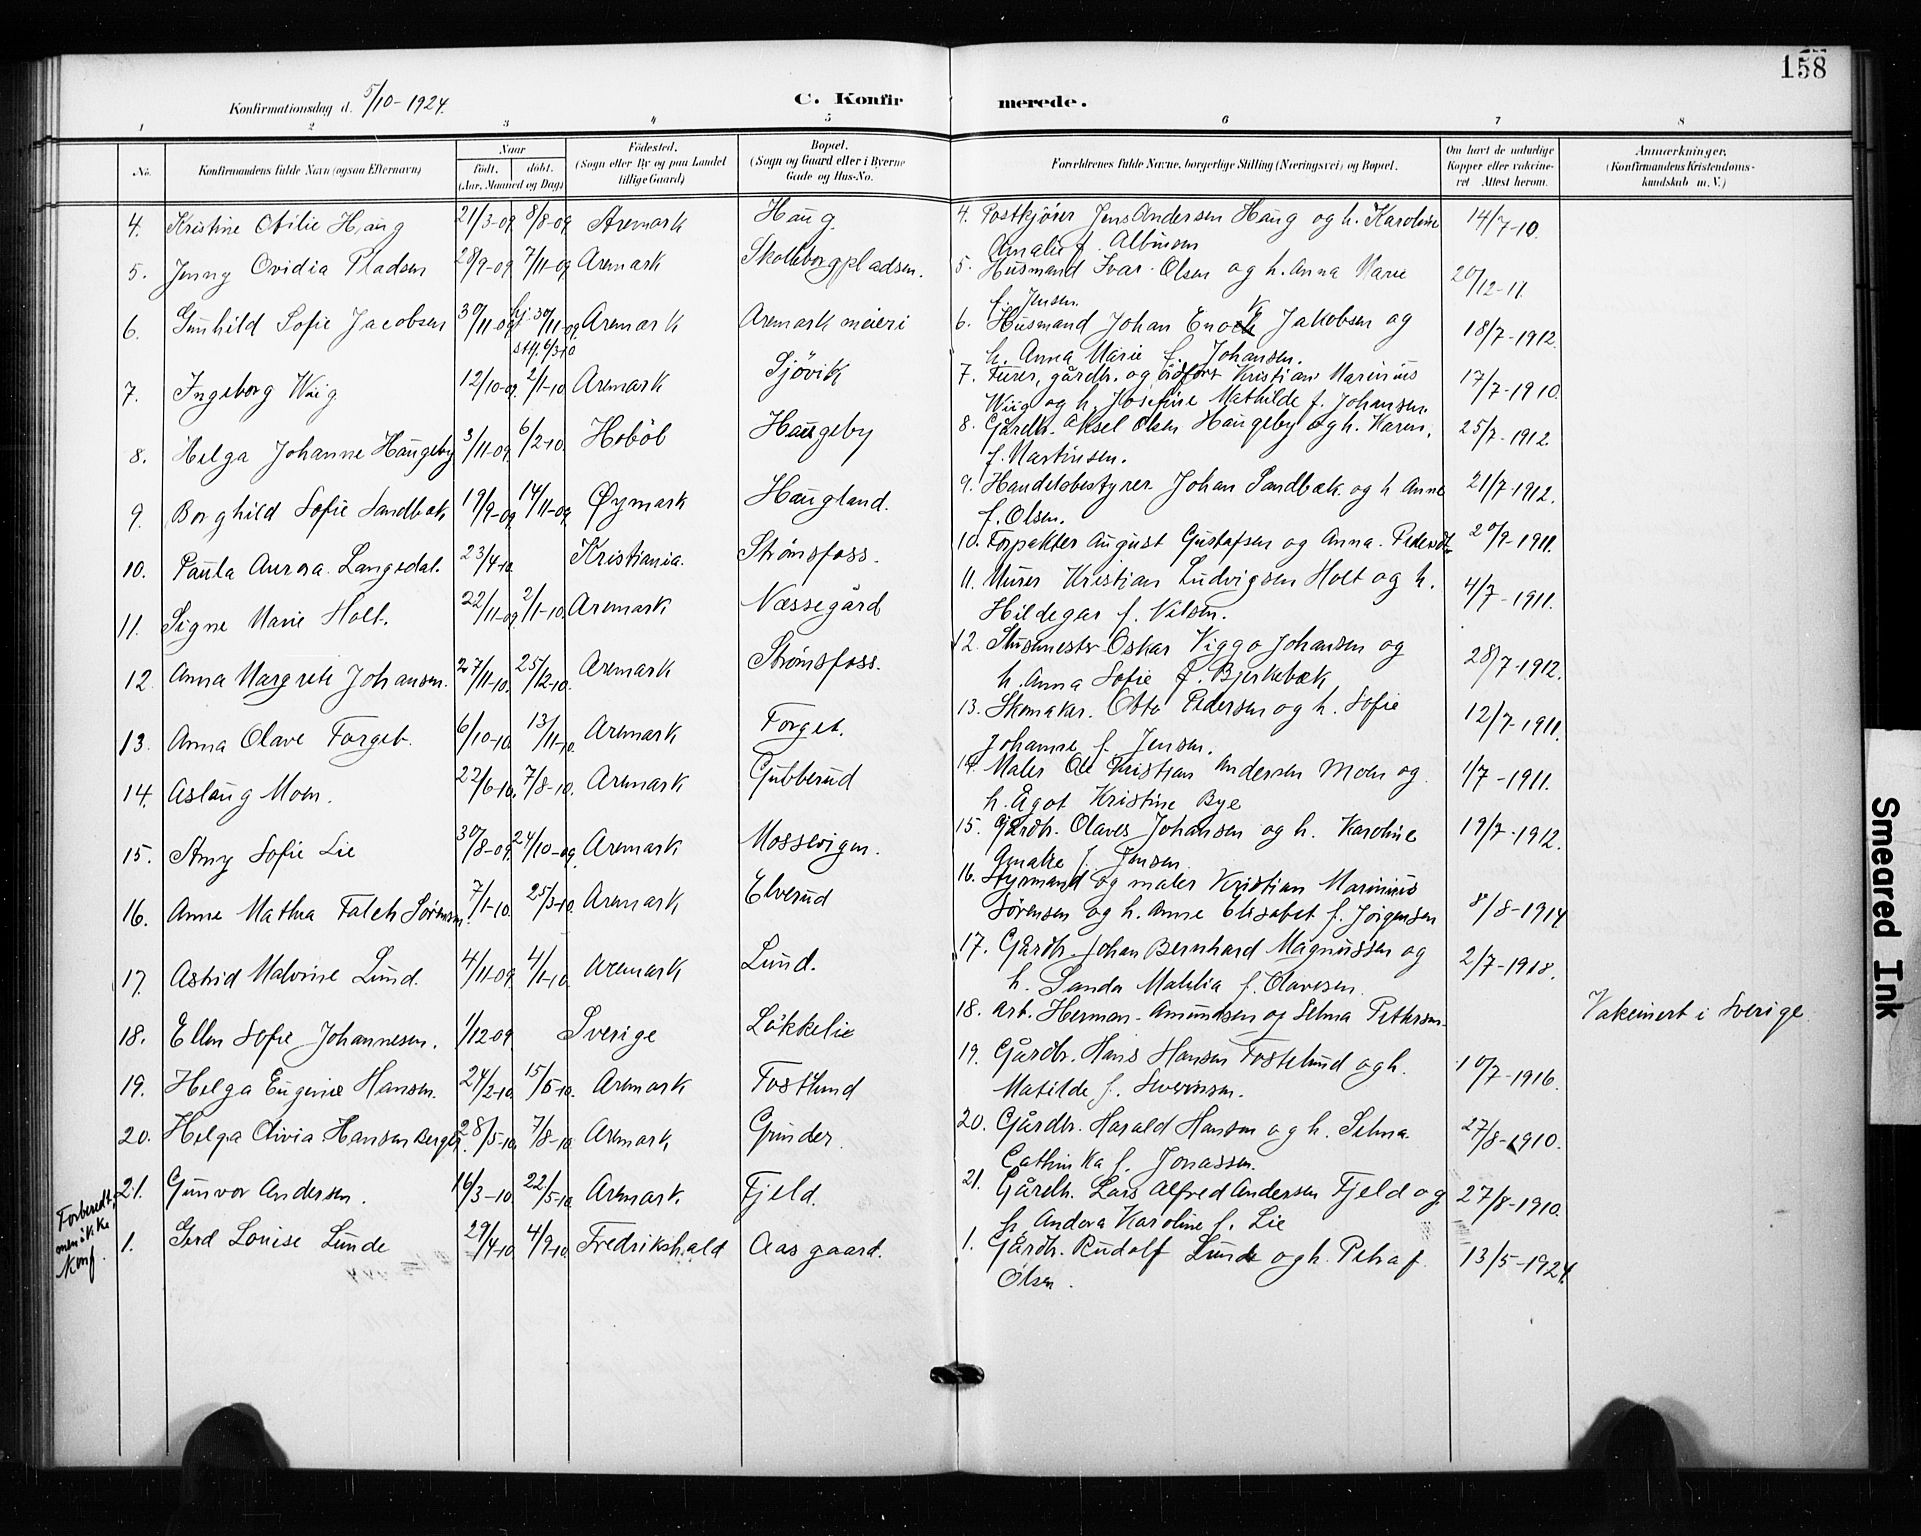 158
Konfirmationsdag d. 5/10-1924.
C. Konfirmerede.
1 2 3 4 5 6 7 8
No.
Konfirmandens fulde Navn (ogsaa Efternavn)
Naar
født. døbt.
(Aar, Maaned og Dag)
Fødested.
(Sogn eller By og paa Landet
tillige Gaard)
Bopæl.
(Sogn og Gaard eller i Byerne
Gade og Hus-No.
Forældrenes fulde Navne, borgerlige Stilling (Næringsvei) og Bopæl.
Om havt de naturlige
Kopper eller vakcine-
ret Attest herom.
Anmærkninger.
(Konfirmandens Kristendoms-
kundskab m. V.)
4. Kristine Otilie Haug 21/3-09 8/8-09 Aremark Haug 4. Postkjører Jens Andersen Haug og h. Karoline 14/7-10.
Amalie f. Albinsen
5. Jenny Ovidia Pladsen 28/9-09 7/11-09 Aremark Skolleborgpladsen. 5. Husmand Ivar Olsen og h. Anna Marie 20/12-11.
f. Jensen.
6. Gunhild Sofie Jacobsen 30/11-09 hj. 30/11-09 Aremark Aremark meieri 6. Husmand Johan Enock Jakobsen og 18/7-1912.
stf. 6/3 10 h. Anna Marie f. Johansen.
7. Ingeborg Wiig 12/10-09 2/1-10. Aremark Sjövik 7. Furer, gårdbr. og Kristian Marinius 17/7-1910.
Wiig og h. Josefine Mathilde f. Johansen.
8. Helga Johanne Haugeby 3/11-09. 6/2-10. Hobøl Haugeby 8. Gårdbr. Aksel Olsen Haugeby og h. Karen, 25/7-1912.
f. Martinsen.
9. Borghild Sofie Sandbæk 19/9-09 14/11-09 Øymark Haugland. 9. Handelsbestyrer Johan Sandbæk og h Anne 21/7-1912.
f. Olsen.
10. Paula Aurora Langsdal. 23/4-10. Kristiania. Strømsfoss. 10. Forpakter August Gustafsen og Anna 20/9-1911.
11. Signe Marie Holt. 22/11-09. 2/1-10. Aremark Næssegård 11. Murer Kristian Ludvigsen Holt og h. 4/7-1911.
Hildegar f. Nilsen.
12. Anna Margrete Johansen. 27/11-10. 25/12-10. Aremark Strømsfoss. 12. Slusemester Oskar Viggo Johansen og 28/7-1912.
h. Anna Sofie f. Bjerkebæk
13. Anna Olave Forget. 6/10-10. 13/11-10. Aremark Forget. 13. Skomaker. Otto Pedersen og h. Sofie 12/7-1911.
Johanne f. Jensen.
14. Aslaug Moen. 22/6-10. 7/8-10. Aremark Gubberud 14. Maler Ole Kristian Andersen Moen og 1/7-1911.
h. Ågot Kristine Bye
15. Amy Sofie Lie 30/8-09. 24/10-09. Aremark Mossevigen. 15. Gårdbr. Olaves Johansen og h. Karoline 19/7-1912.
Amalie f. Jensen.
16. Anne Mathea Falch Sørensen 7/1-10. 25/3-10. Aremark Elverud 16. Styrmand og maler Kristian Marinius
Sørensen og h. Anne Elisabet f. Jørgensen 8/8-1914
17. Astrid Malvine Lund. 4/11-09. 4/1-10. Aremark Lund. 17. Gårdbr. Johan Bernhard Magnussen og 2/7-1918.
h. Sanda Mathlia f. Olavesen.
18. Ellen Sofie Johannesen. 1/12-09. Sverige Løkkelie 18. Arb. Herman Amundsen og Selma Petersen Vakcinert i Sverige.
19. Helga Eugenie Hansen. 24/2-10. 15/5-10. Aremark Fostlund 19. Gårdbr. Hans Hansen Fostelund og h. 10/7-1916.
Matilde f. Severinsen.
20. Helga Olivia Hansen Berger 28/5-10. 7/8-10. Aremark Grinder. 20. Gårdbr. Harald Hansen og h. Selma 27/8-1910.
Cathinka f. Jonassen.
21. Gunvor Andersen. 16/3-10. 22/5-10. Aremark Fjeld. 21. Gårdbr. Lars Alfred Andersen Fjeld og 27/8-1910.
h. Andora Karoline f. Lie
Forberedt,
men ikke
konf.
1. Gerd Louise Lunde 29/4-10 4/9-10 Fredrikshald Aasgaard. 1. Gårdbr. Rudolf Lunde og h. Petra f. 13/5-1924.
Olsen.
Smeared Ink